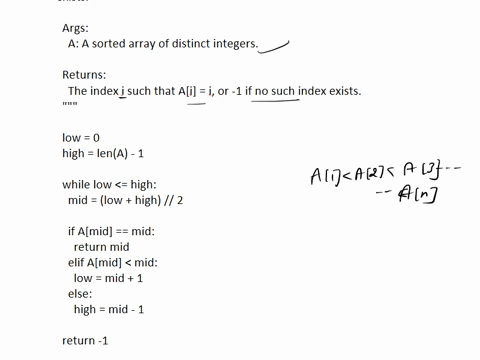 Args:
A: A sorted array of distinct integers.
Returns:
The index i such that A[i] = i, or -1 if no such index exists.
"""
low = 0
high = len(A) - 1
while low <= high:
mid = (low + high) // 2
if A[mid] == mid:
return mid
elif A[mid] < mid:
low = mid + 1
else:
high = mid - 1
return -1
A[1]<A[2]< A[3]---
-- A[n]